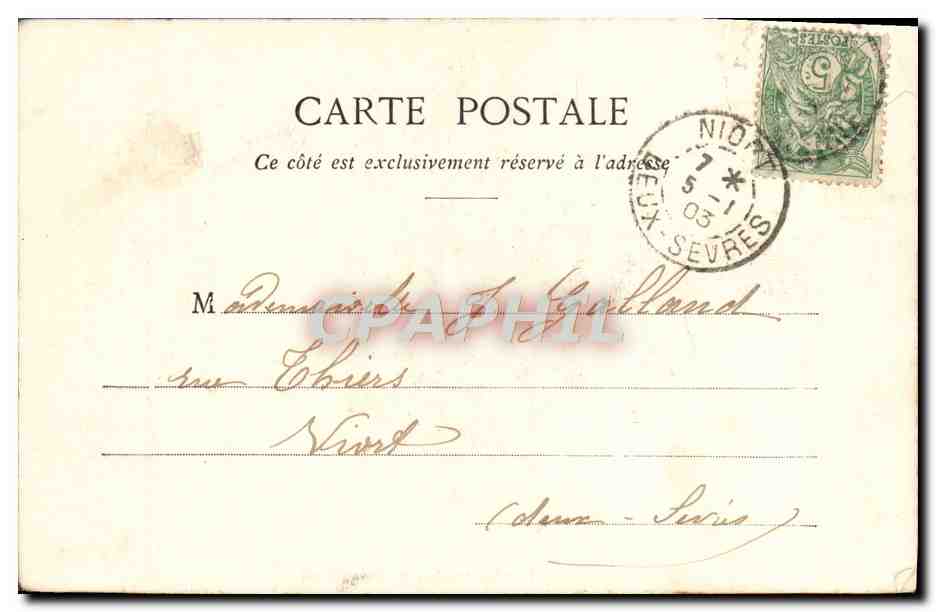 POSTES
5
CARTE POSTALE
NIORT
7 *
5 - 1
03
DEUX-SEVRES
Ce côté est exclusivement réservé à l'adresse
Mademoiselle J Galland
CPAPHIL
rue Thiers
Niort
(deux-Sèvres)